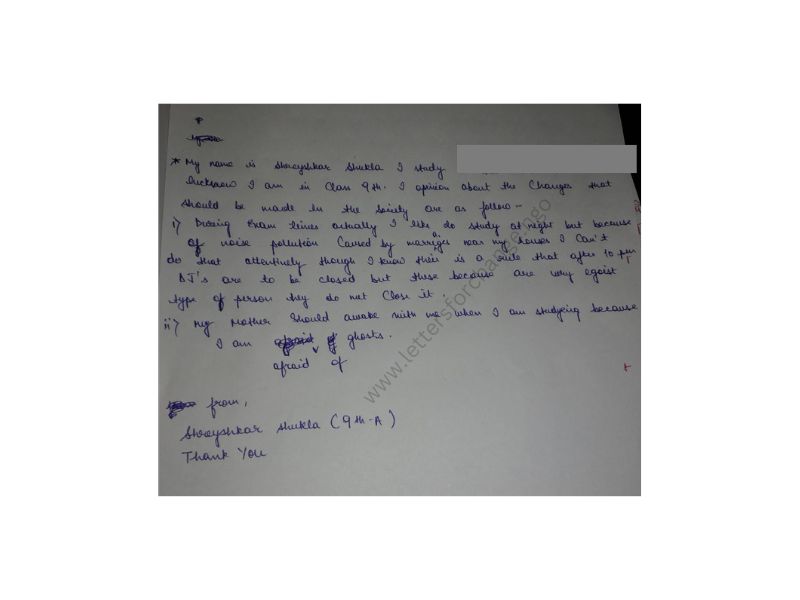 * My name is Shreyshkar Shukla I study
Lucknow I am in Class 9th. I opinion about the Changes that
should be made in the Society are as follow--
i) During Exam times actually I like do study at night but because
of noise pollution Caused by marriges near my houses I Can't
do that attentively though I know their is a rule that after 10 pm
DJ's are to be closed but these because are very egoist
type of person they do not Close it.
ii) My Mother Should awake with me when I am studying because
I am ghosts.
afraid of
from,
Shreyshkar Shukla (9th-A)
Thank You
www.lettersforchange.ngo